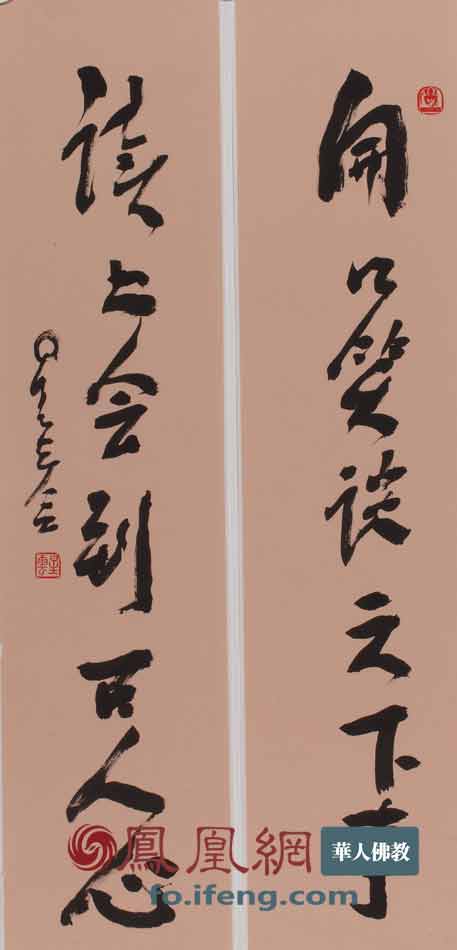 開口笑談天下事
讀書会到古人心
鳳凰網
華人佛教
fo.ifeng.com